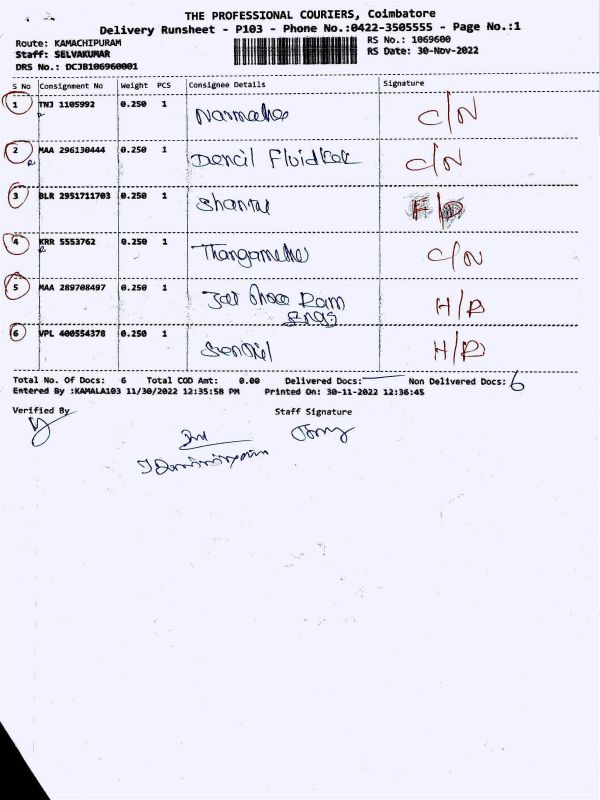 THE PROFESSIONAL COURIERS, Coimbatore
Delivery Runsheet - P103 - Phone No.:0422-3505555 - Page No.:1
Route: KAMACHIPURAM
RS No.: 1069600
Staff: SELVAKUMAR
RS Date: 30-Nov-2022
DRS No.: DCJB106960001
S No Consignment No Weight PCS Consignee Details Signature
1 TNJ 1105992 0.250 1 C/N
2 MAA 296130444 0.250 1 Dencil C/N
3 BLR 2951711703 0.250 1 F/D
4 KRR 5553762 0.250 1 C/N
5 MAA 289708497 0.250 1 Ram H/B
6 VPL 400554378 0.250 1 H/B
Total No. Of Docs: 6 Total COD Amt: 0.00 Delivered Docs: Non Delivered Docs: 6
Entered By :KAMALA103 11/30/2022 12:35:58 PM Printed On: 30-11-2022 12:36:45
Verified By Staff Signature